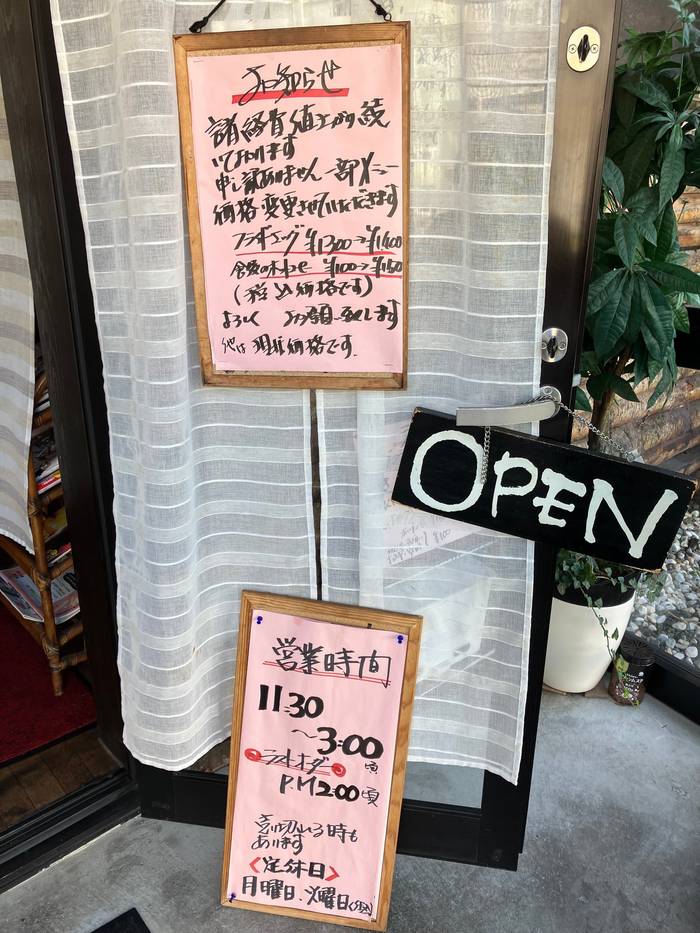 お知らせ
諸経費値上がり続
いております
申し訳ありません一部メニュー
価格変更させていただきます
フライエッグ ¥1300→¥1400
食後の ¥100→¥150
(税込価格です)
よろしく お願い致します
他は現在価格です。
OPEN
営業時間
11:30
～3:00頃
ラストオーダー
P.M 2:00頃
売り切れる時も
あります
<定休日>
月曜日、火曜日